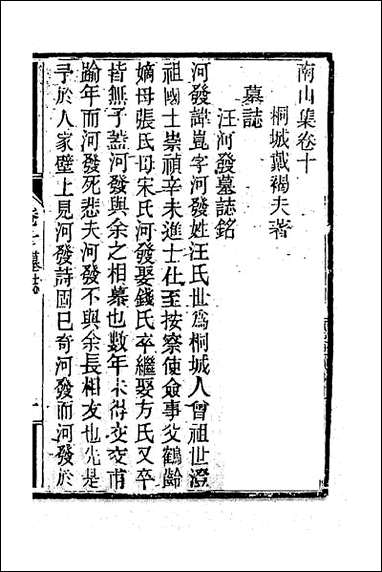 南山集卷十
桐城戴褐夫著
墓誌
汪河發墓誌銘
河發諱崑字河發姓汪氏世爲桐城人曾祖世澄
祖國士崇禎辛未進士仕至按察使僉事父鶴齡
嫡母張氏母宋氏河發娶錢氏卒繼娶方氏又卒
皆無子蓋河發與余之相慕也數年未得交交甫
踰年而河發死悲夫河發不與余長相友也先是
予於人家壁上見河發詩固已奇河發而河發於
墓誌